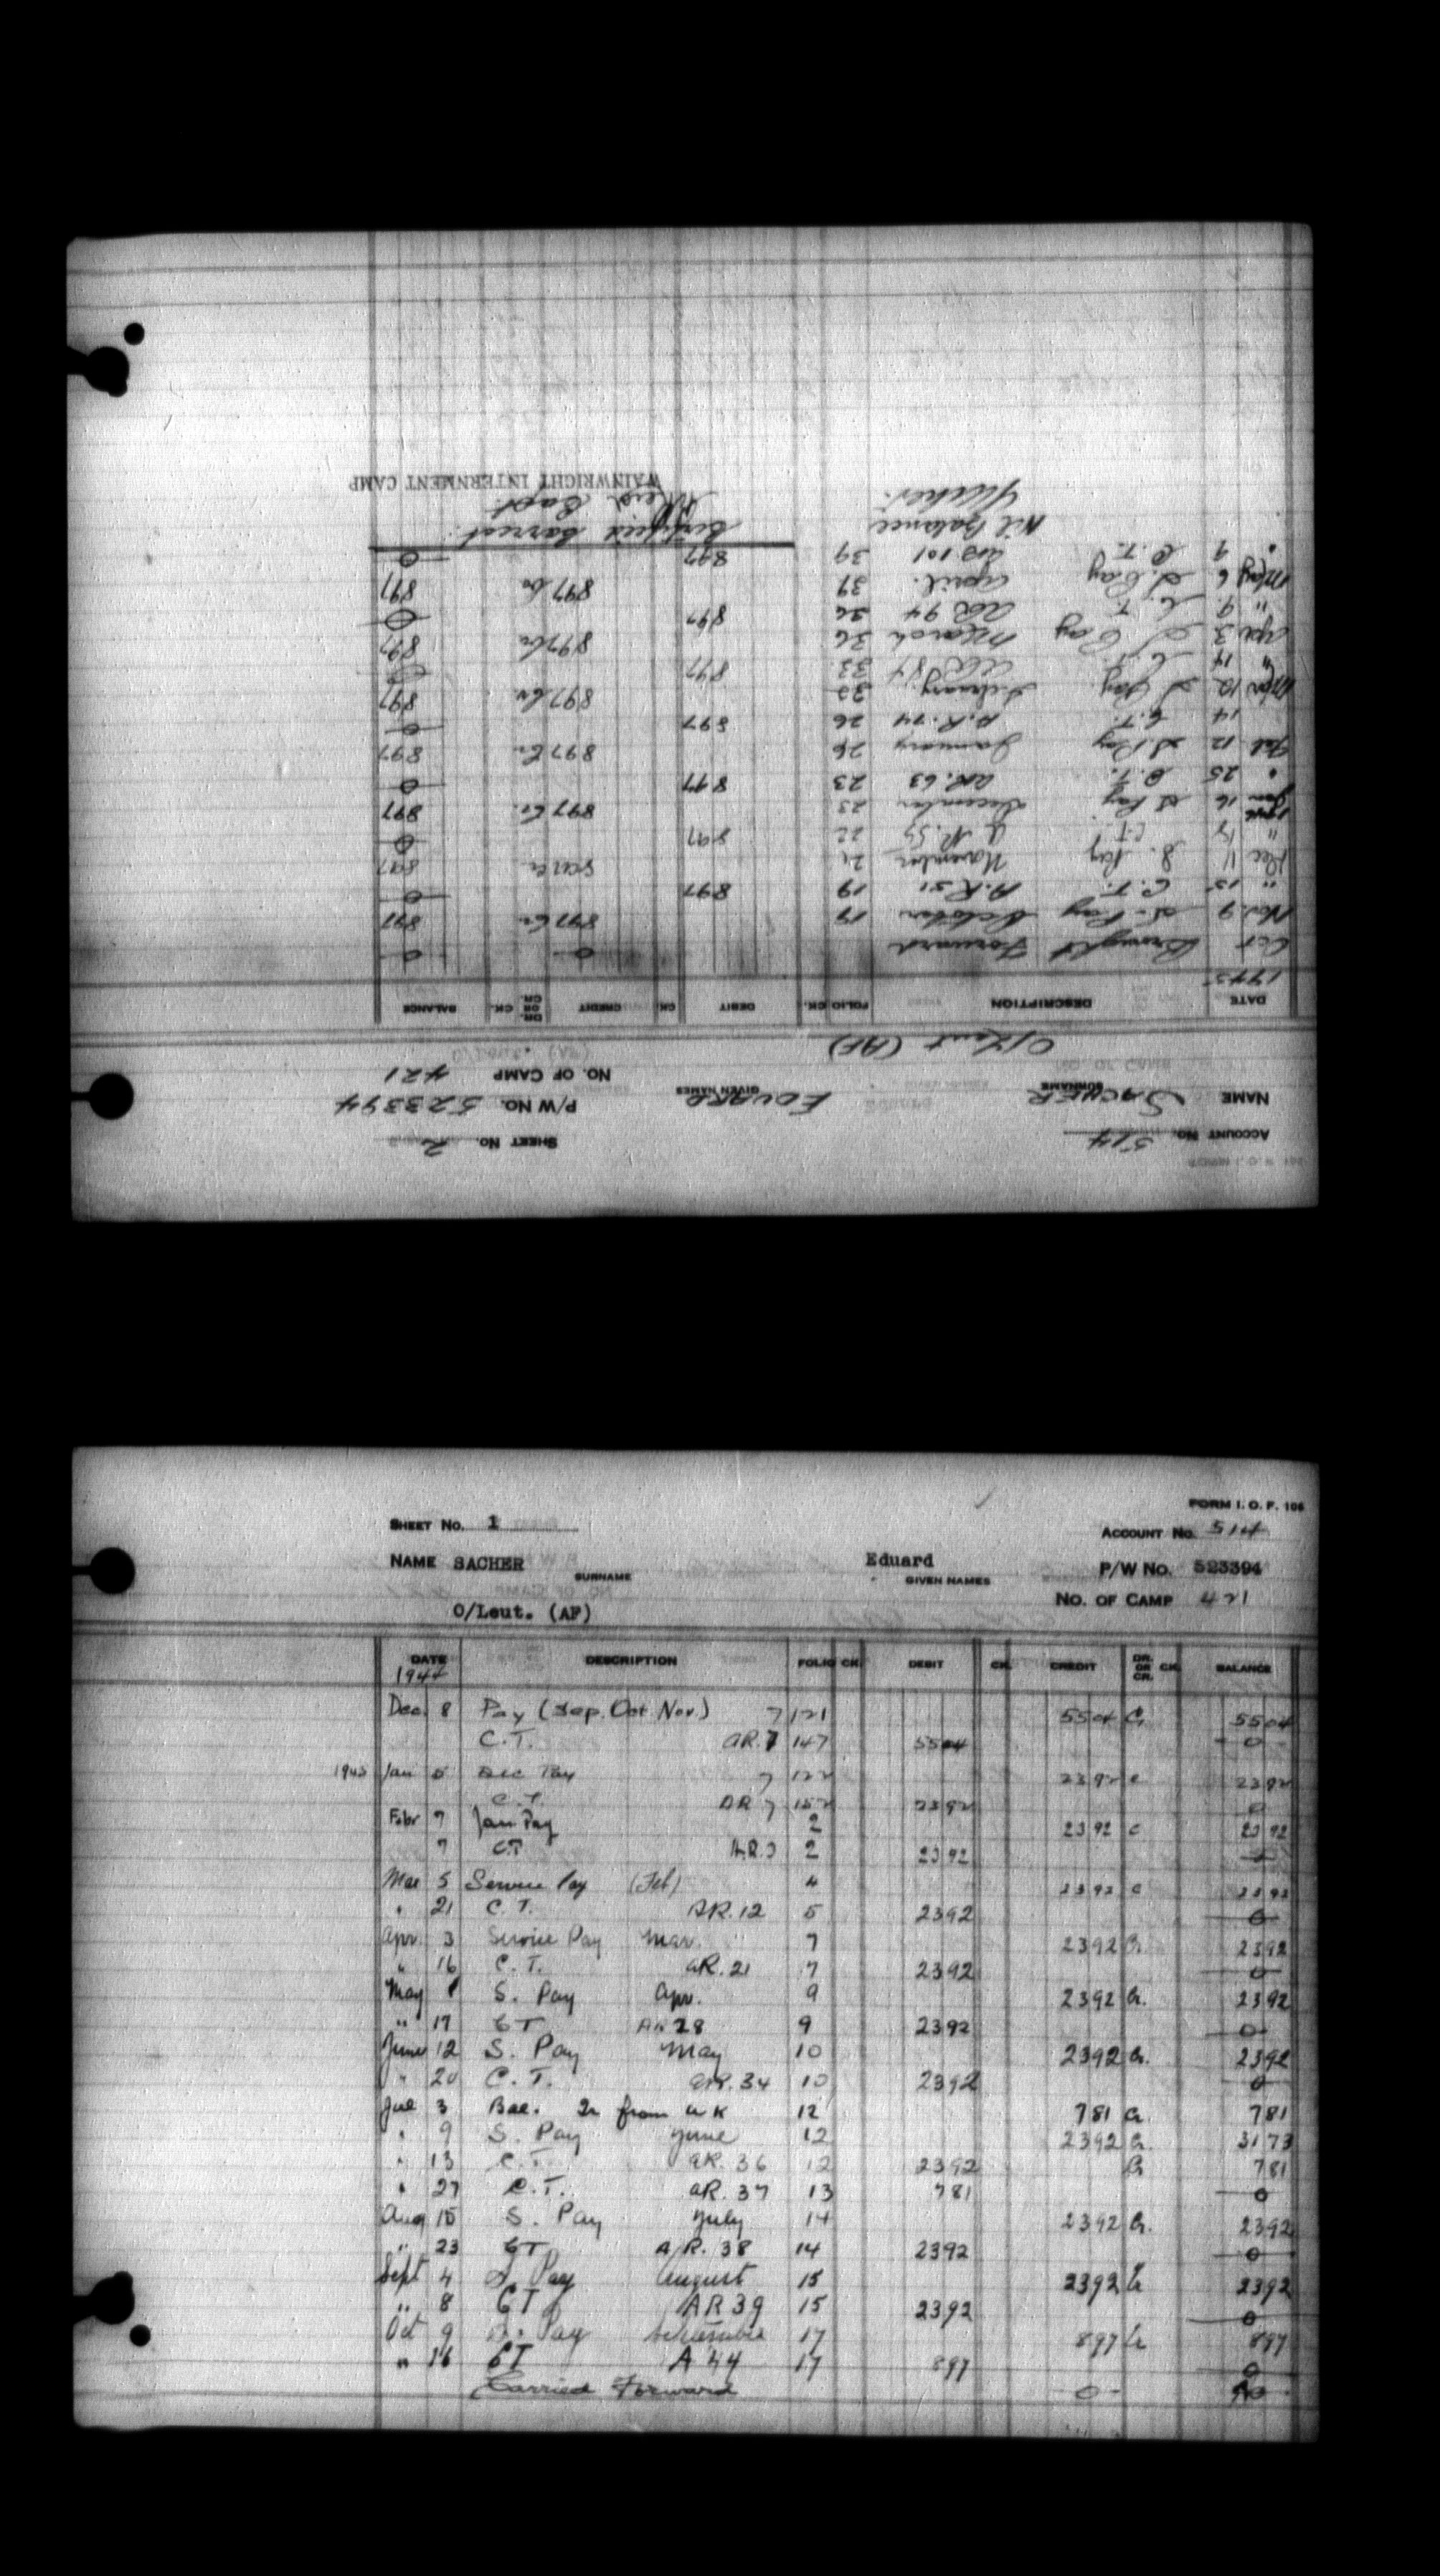 FORM I. O. F. 106
SHEET No. 1
ACCOUNT No. 514
NAME SACHER Eduard P/W No. 523394
SURNAME GIVEN NAMES
NO. OF CAMP 421
O/Leut. (AF)
DATE DESCRIPTION FOLIO CK. DEBIT CK. CREDIT DR. OR CR. CK. BALANCE
1944
Dec. 8 Pay (Sep. Oct Nov.) 7 121 5504 Cr 5504
C.T. AR.7 147 5504 0
1945 Jan 5 Dec Pay 7 122 2392 c 2392
C.T. AR 7 152 2392 0
Febr 7 Jan Pay 2 2392 c 2392
7 CT A.R.7 2 2392 0
Mar 5 Service Pay (Feb) 4 2392 c 2392
" 21 C.T. AR.12 5 2392 0
Apr. 3 Service Pay Mar. 7 2392 Cr. 2392
" 16 C.T. AR.21 7 2392 0
May 8 S. Pay Apr. 9 2392 Cr. 2392
" 17 CT AR 28 9 2392 0
June 12 S. Pay May 10 2392 Cr. 2392
" 20 C.T. AR.34 10 2392 0
Jul 3 Bal. from 12 781 Cr. 781
" 9 S. Pay June 12 2392 Cr. 3173
" 13 C.T. AR.36 12 2392 Cr 781
" 27 C.T. AR.37 13 781 0
Aug 15 S. Pay July 14 2392 Cr. 2392
" 23 CT A/R. 38 14 2392 0
Sept 4 S. Pay August 15 2392 Cr 2392
" 8 CT AR 39 15 2392 0
Oct 9 S. Pay September 17 897 Cr 897
" 16 CT A 44 17 897 0
Carried Forward 0 0
ACCOUNT No. 514 SHEET No. 2
NAME SACHER EDUARD P/W No. 523394
SURNAME GIVEN NAMES
O/Leut (AF) NO. OF CAMP 421
DATE DESCRIPTION FOLIO CK. DEBIT CK. CREDIT DR. OR CR. CK. BALANCE
1945
Oct Brought Forward 0 0
Nov. 9 S. Pay October 19 897 Cr. 897
" 15 C.T. A.R 51 19 897 0
Dec 11 S. Pay November 21 897 Cr 897
" 18 C.T. A.R. 59 22 897 0
1946
Jan 16 S Pay December 23 897 Cr. 897
" 25 C.T. AR. 63 23 897 0
Feb 12 S. Pay January 26 897 Cr 897
14 C.T. A.R. 74 26 897 0
Mar 12 S Pay February 33 897 Cr 897
" 14 C.T. 33 897 0
Apr 3 S Pay March 36 897 Cr 897
" 9 C.T. 94 36 897 0
May 6 S. Pay April. 39 897 Cr 897
" 9 C.T. 101 39 897 0
Nil Balance Certified Correct.
Capt
WAINWRIGHT INTERNMENT CAMP